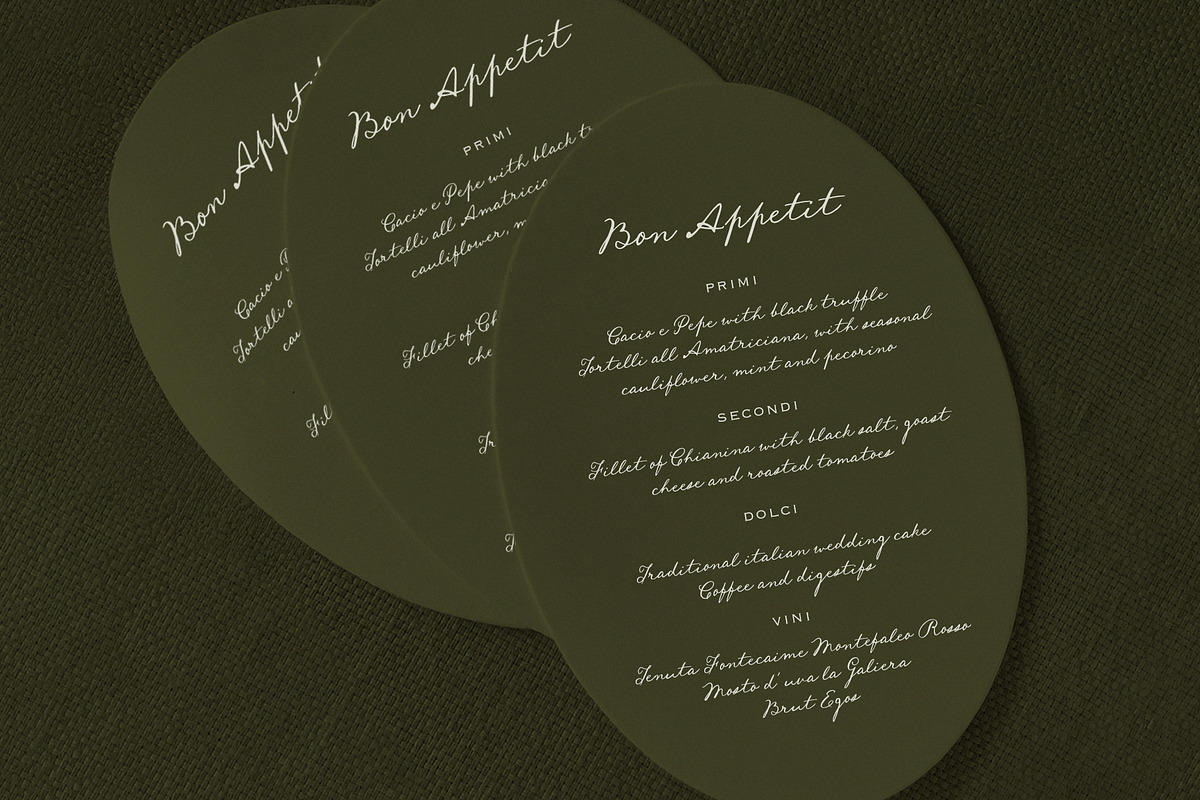 Bon Appet
Cacio e P
Tortelli a
cau
Fil
Bon Appetit
PRIMI
Cacio e Pepe with black tr
Tortelli all Amatricia
cauliflower, m
Fillet of Ch
che
Tr
T
Bon Appetit
PRIMI
Cacio e Pepe with black truffle
Tortelli all Amatriciana, with seasonal
cauliflower, mint and pecorino
SECONDI
Fillet of Chianina with black salt, goast
cheese and roasted tomatoes
DOLCI
Traditional italian wedding cake
Coffee and digestifs
VINI
Tenuta Fontecaime Montefalco Rosso
Mosto d' uva la Galiera
Brut Egos